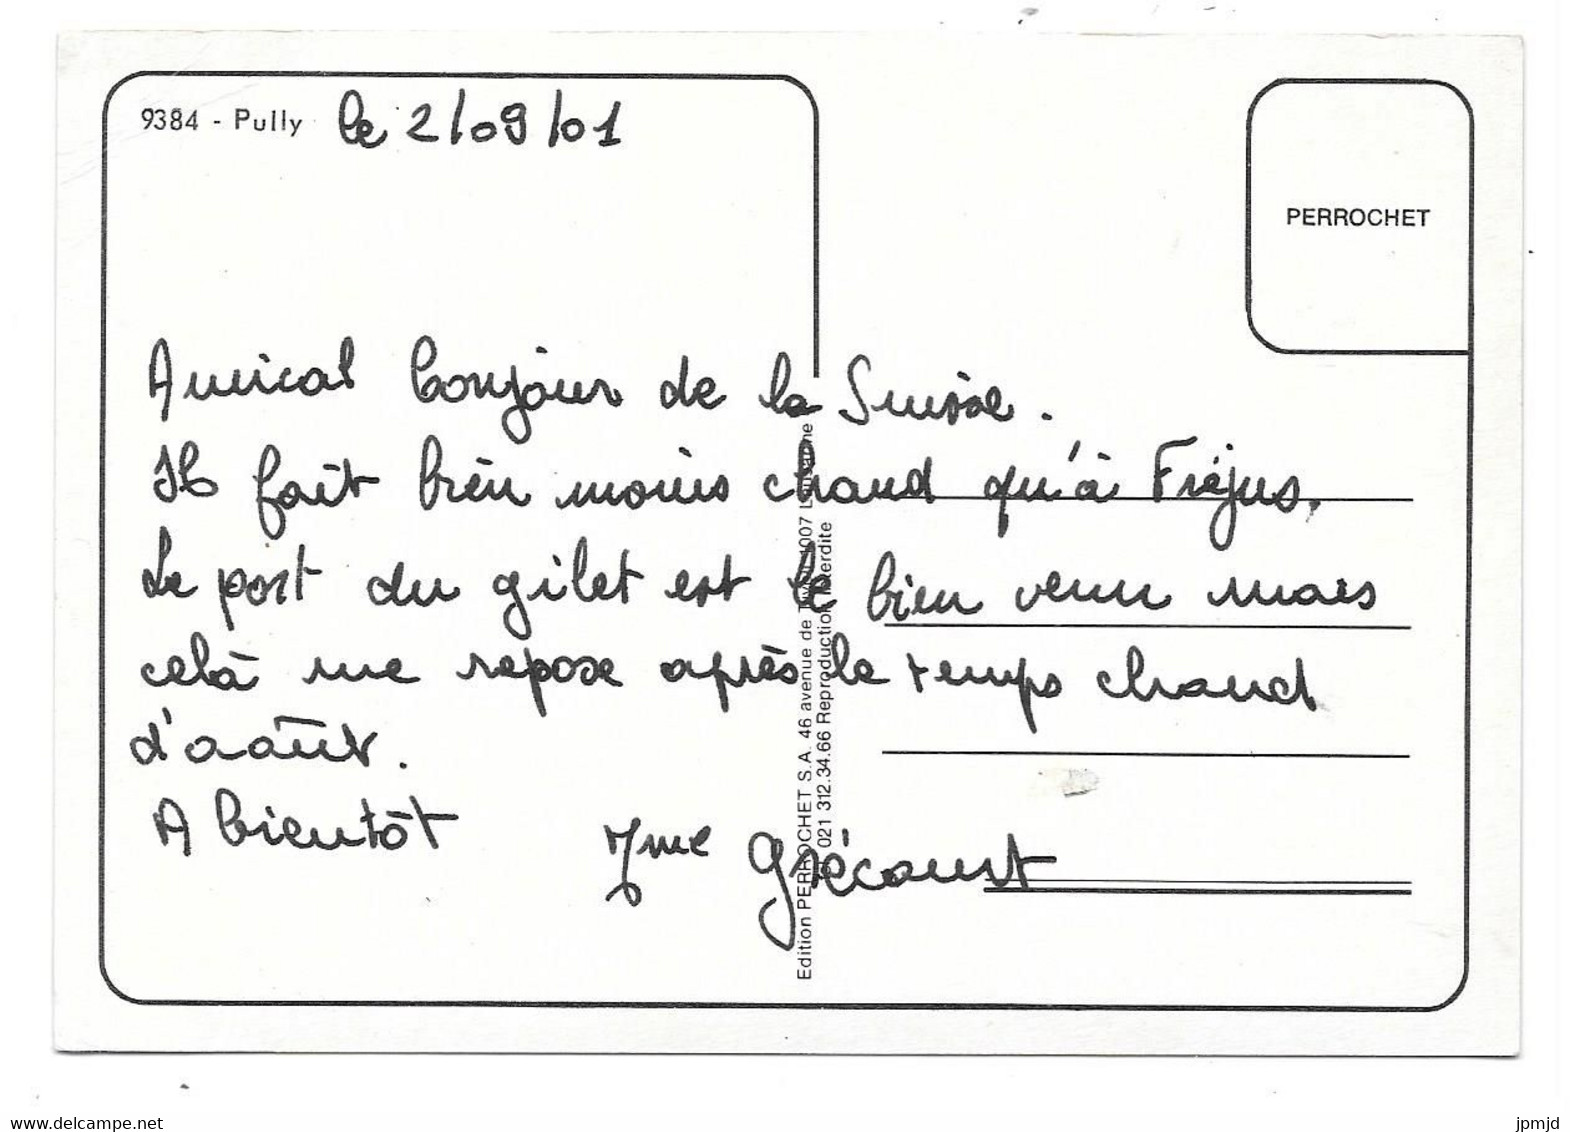 9384 - Pully le 2/09/01
PERROCHET
Amical bonjour de la Suisse.
Il fait bien moins chaud qu'à Fréjus.
Le port du gilet est le bien venu mais
celà me repose après le temps chaud
d'août.
A bientôt Mme Grécourt
Edition PERROCHET S.A. 46 avenue de Tivoli 1007 Lausanne
Tél 021 312.34.66 Reproduction interdite
www.delcampe.net
jpmjd